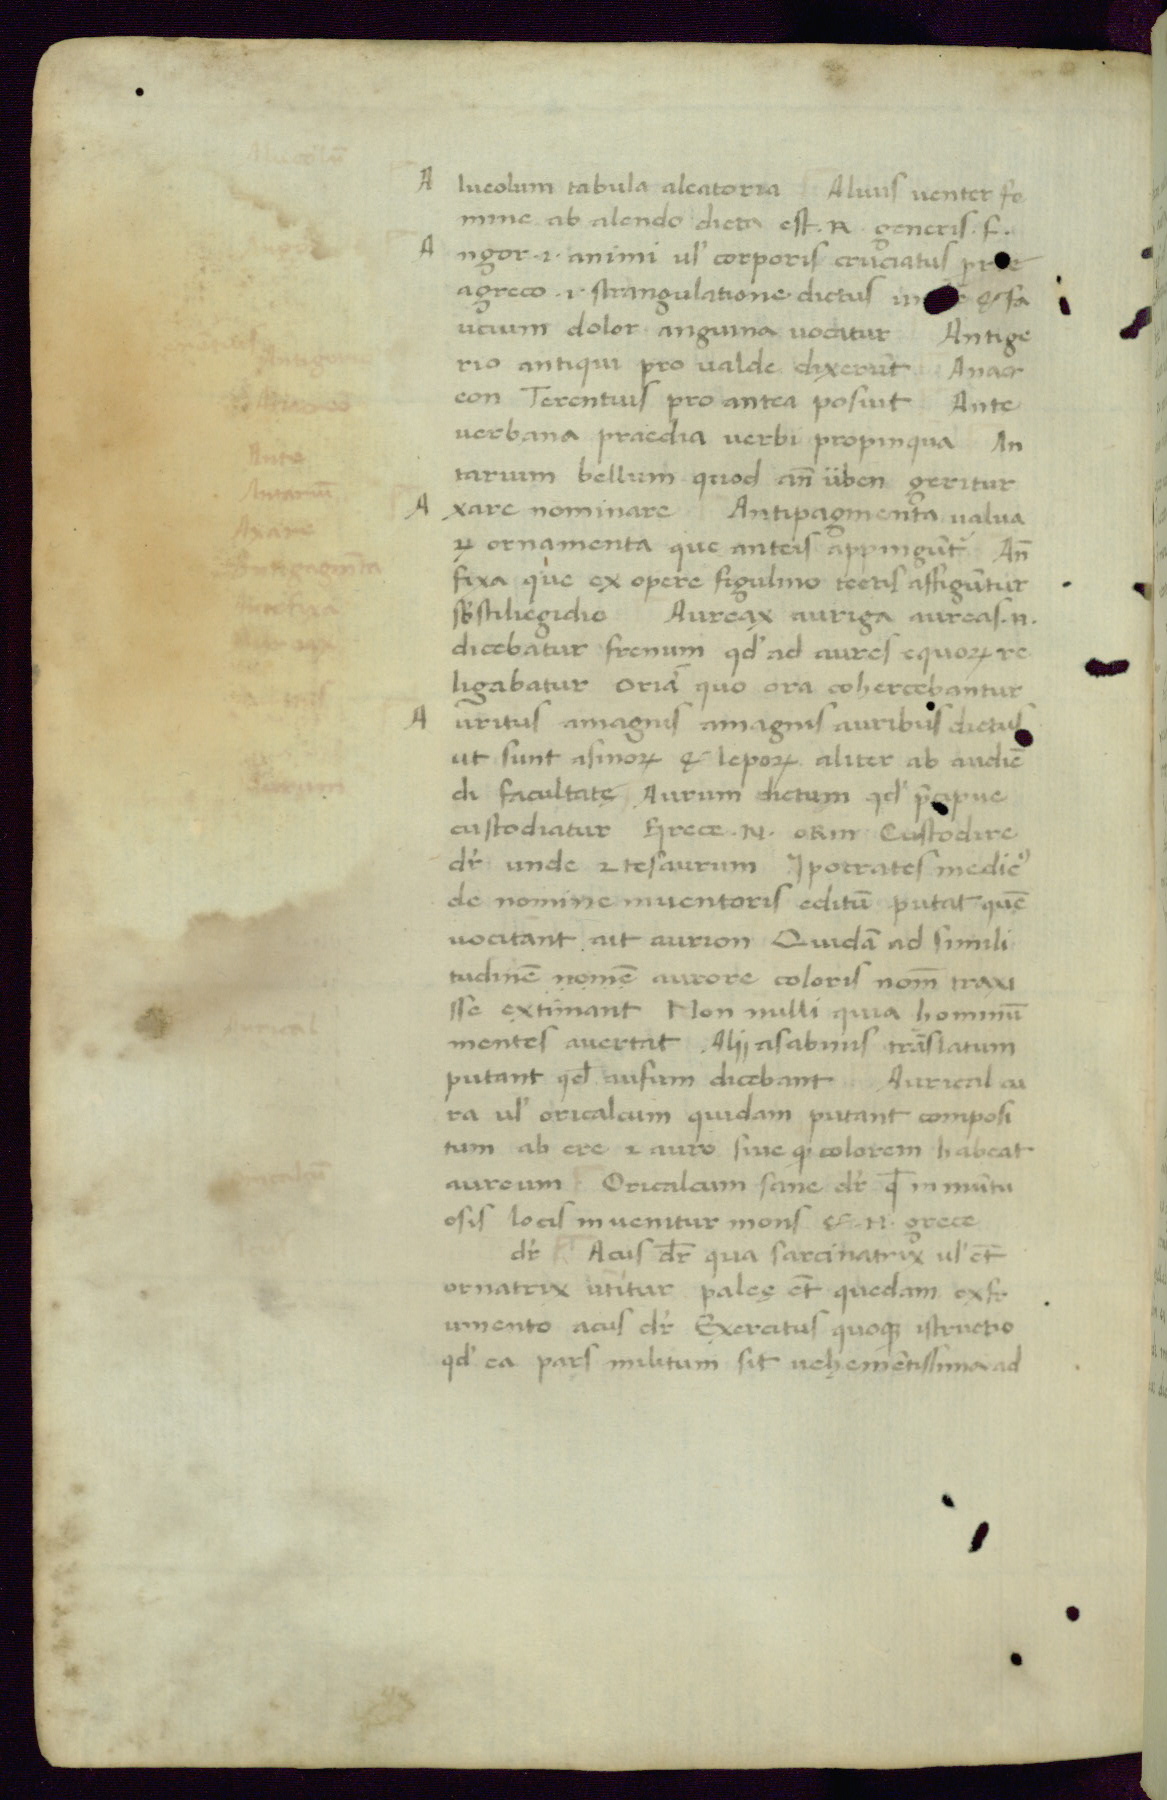 Alueolum tabula aleatoria Aluus uenter fe
mine ab alendo dicta est. R. generis. f.
Angor .i. animi ul' corporis cruciatus
agreco .i. strangulatione dictus & fa
ucium dolor anguina uocatur Antige
rio antiqui pro ualde dixerūt Anact
eon Terentius pro antea posuit Ante
uerbana praedia uerbi propinqua An
tarium bellum quod añ üben geritur
Axare nominare Antipagmenta ualua
ꝝ ornamenta que anteis appingūt Añ
fixa que ex opere figulino tectis affigūtur
Aureax auriga aureas. n.
dicebatur frenum qd' ad aures equoꝝ re
ligabatur oriā quo ora cohercebantur
Auritus amagnis amagnis auribus dictus
ut sunt asinoꝝ & lepoꝝ aliter ab audiē
di facultate Aurum dictum qd' p̄cipue
custodiatur Grece .N. oRin Custodire
dr̄ unde & tesaurum Ipocrates medic'
de nomine inuentoris editū putat quē
uocitant ait aurion Quidā ad simili
tudinē nomē aurore coloris nom̄ traxi
sse extimant Non nulli quia hominū
mentes auertat Alij asabinis trāslatum
putant qd' ausum dicebant Aurical au
ra ul' oricalcum quidam putant composi
tum ab ere & auro siue ꝙ colorem habeat
aureum Oricalcum sane dr̄ q̄ in mūtu
osis locis inuenitur mons &. N. grece
dr̄ Acus dr̄ qua sarcinatrix ul' et̄
ornatrix utitur paleę et̄ quedam exfr
umento acus dr̄ Exercitus quoqꝫ istructio
qd' ea pars militum sit uehemētissima ad
Ante
Antariū
Axare
Antipagm̄ta
Aurum
Aurical